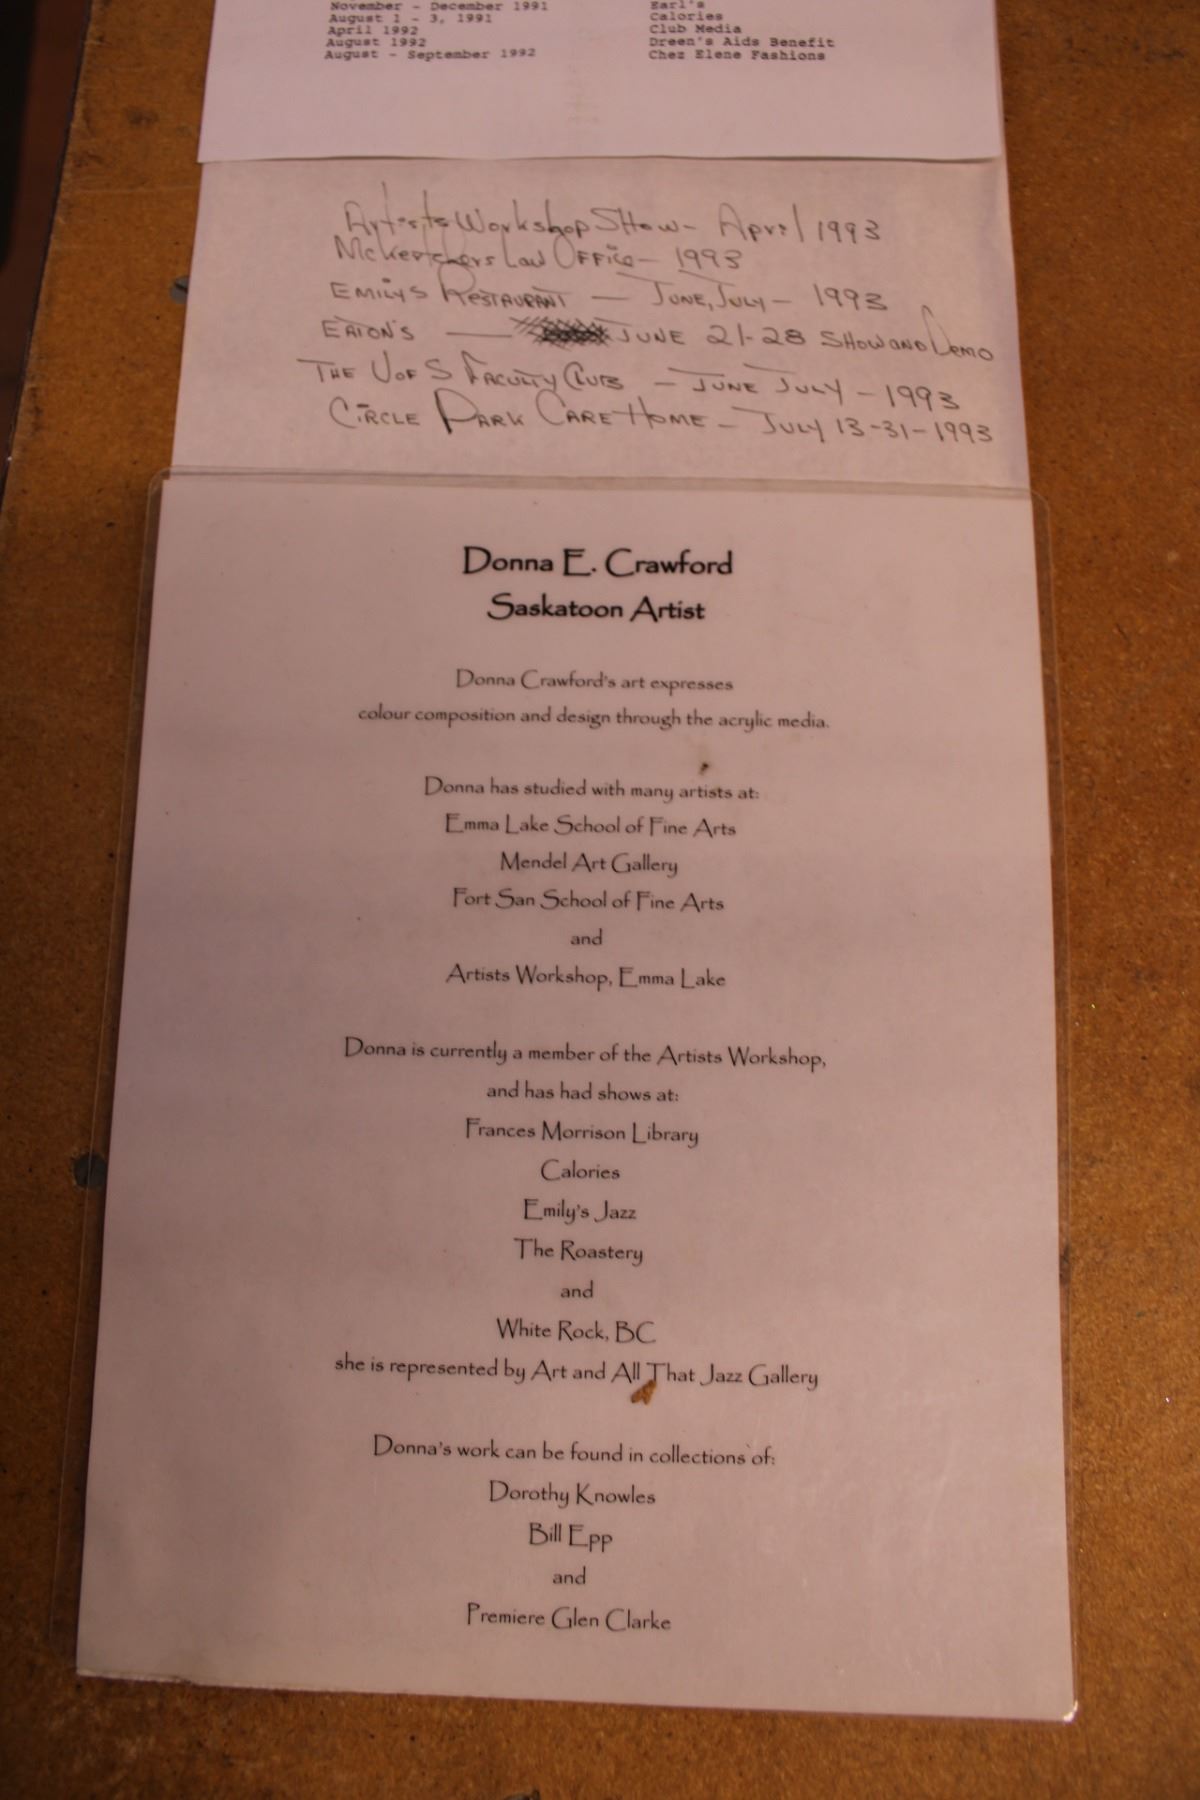 November - December 1991 Earl's
August 1 - 3, 1991 Calories
April 1992 Club Media
August 1992 Dreen's Aids Benefit
August - September 1992 Chez Elene Fashions
Artists Workshop Show - April 1993
McKertchers Law Office - 1993
Emilys Restaurant - June, July - 1993
Eaton's - June 21-28 Show and Demo
The U of S Faculty Club - June July - 1993
Circle Park Care Home - July 13-31-1993
Donna E. Crawford
Saskatoon Artist
Donna Crawford's art expresses
colour composition and design through the acrylic media.
Donna has studied with many artists at:
Emma Lake School of Fine Arts
Mendel Art Gallery
Fort San School of Fine Arts
and
Artists Workshop, Emma Lake
Donna is currently a member of the Artists Workshop,
and has had shows at:
Frances Morrison Library
Calories
Emily's Jazz
The Roastery
and
White Rock, BC
she is represented by Art and All That Jazz Gallery
Donna's work can be found in collections of:
Dorothy Knowles
Bill Epp
and
Premiere Glen Clarke